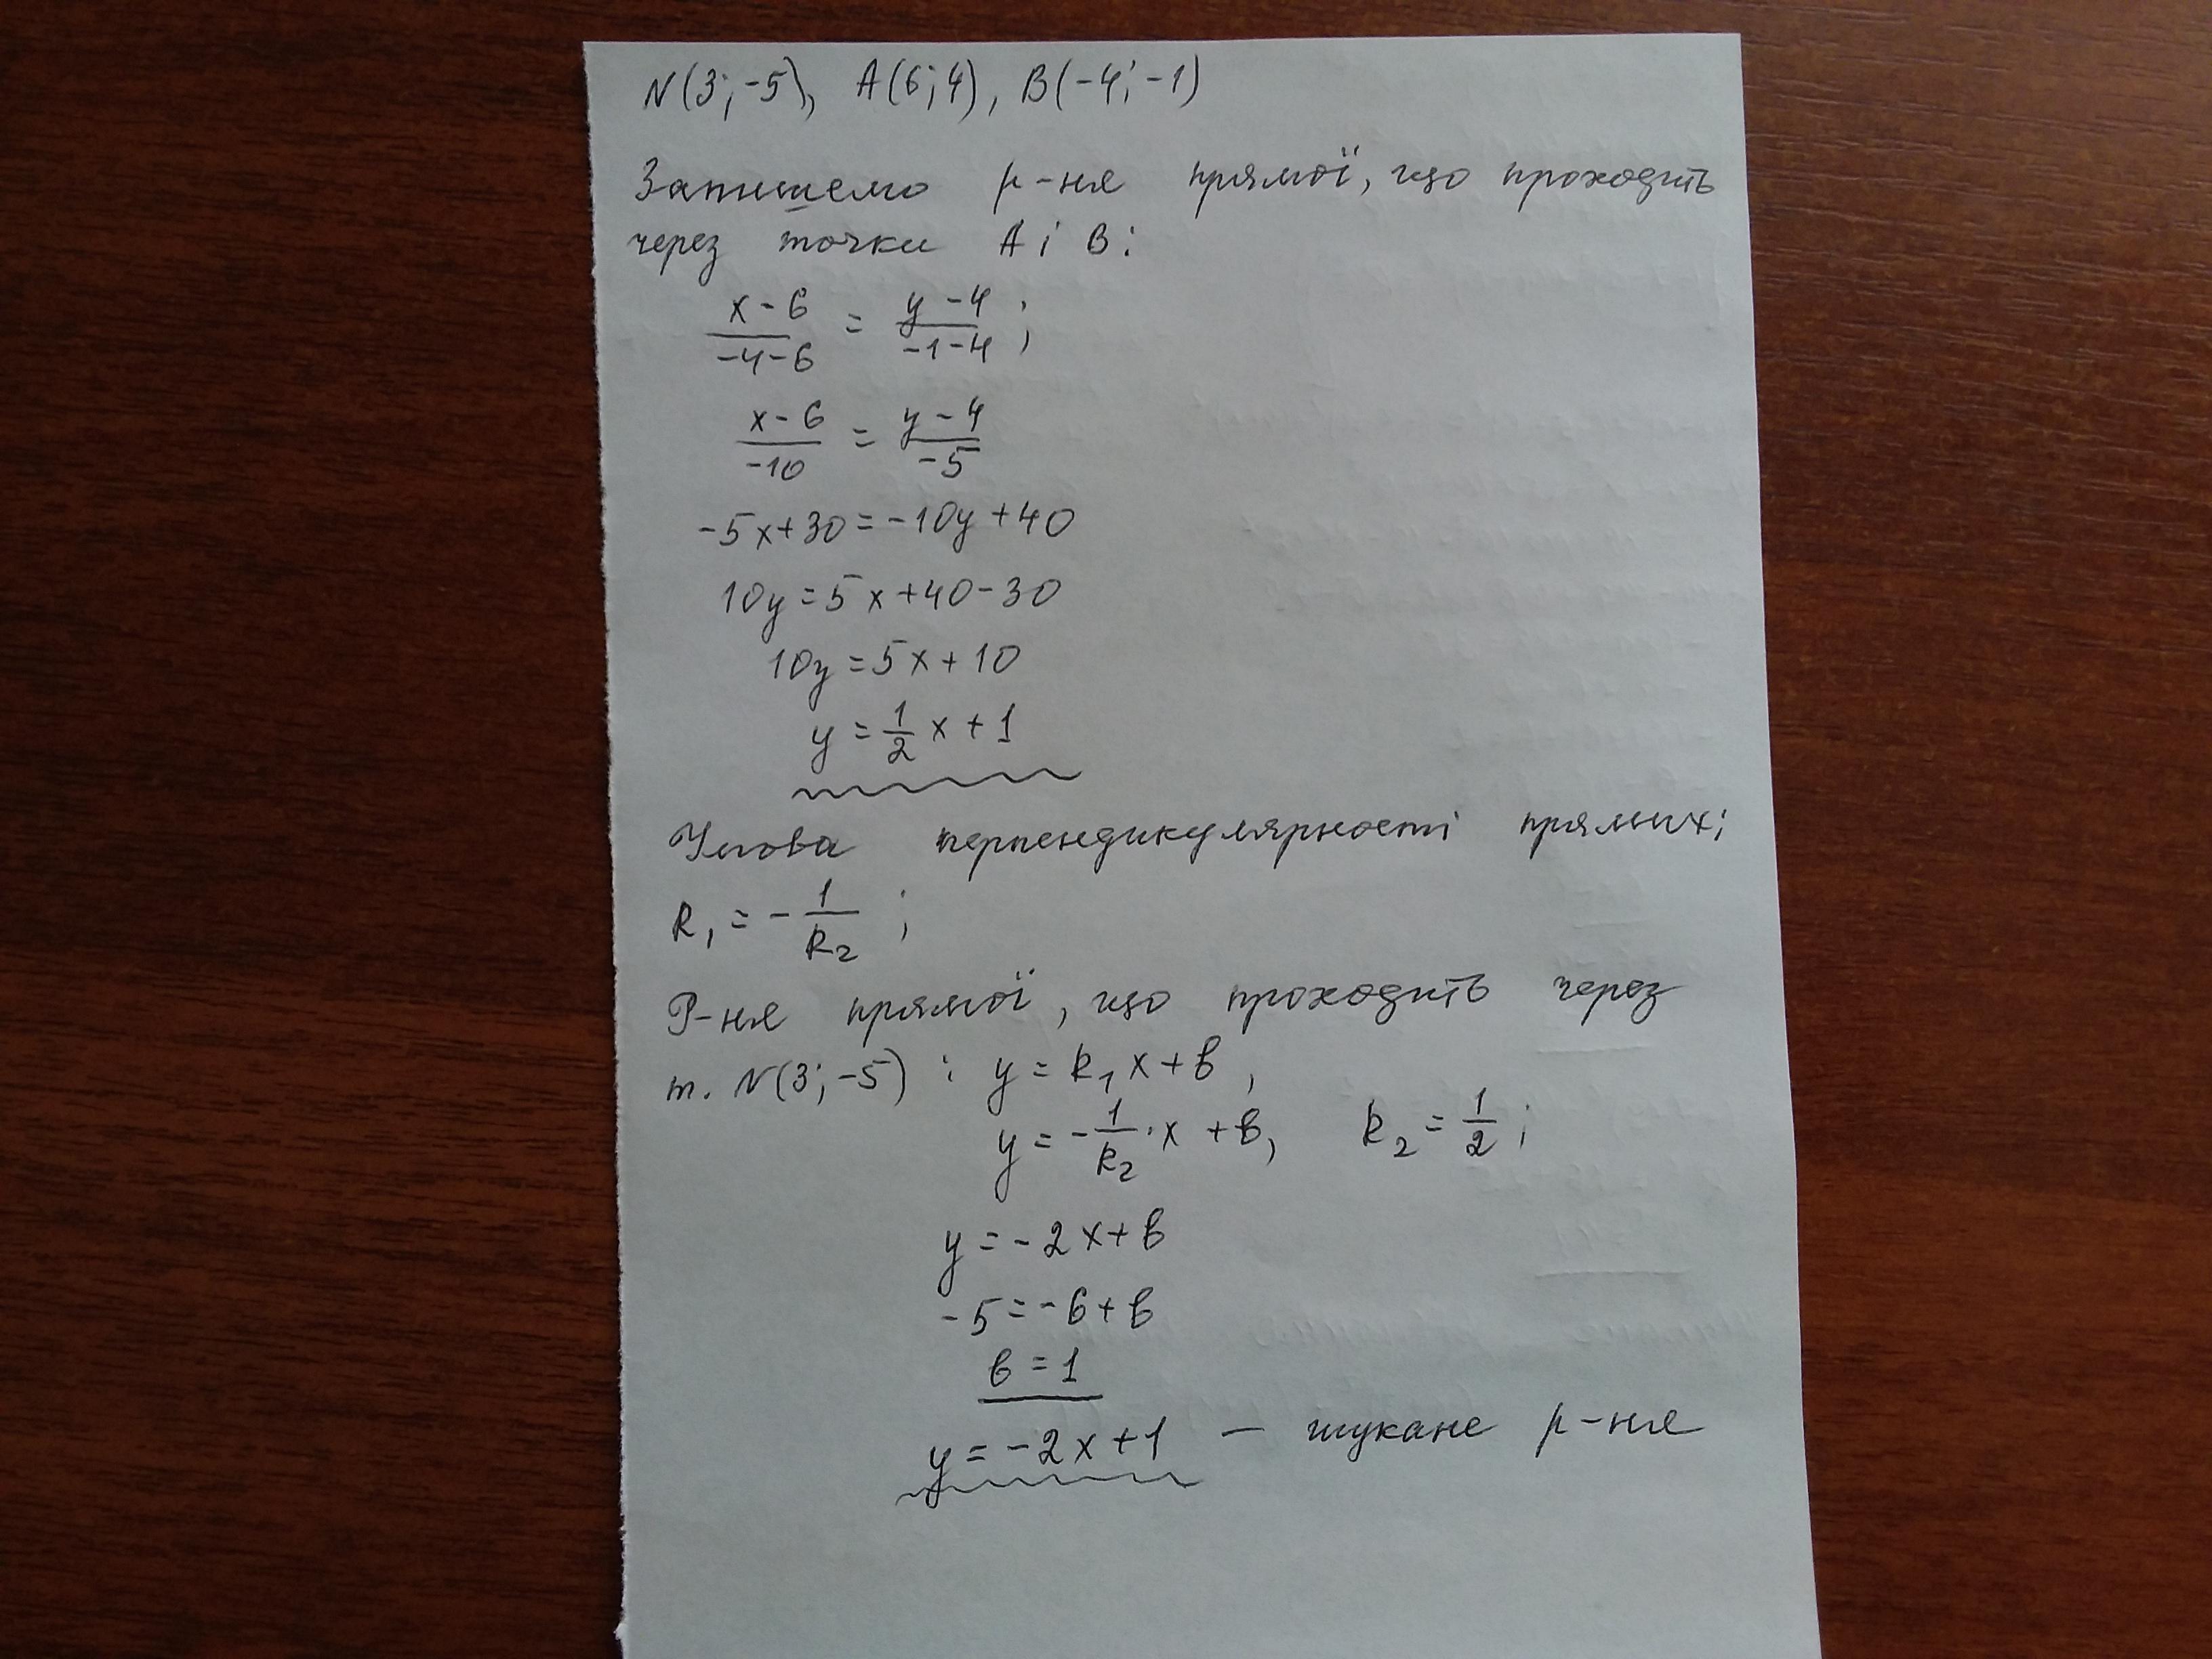 N(3;-5), A(6;4), B(-4;-1)
Запишемо р-ня прямої, що проходить
через точки А і В:
x-6/-4-6 = y-4/-1-4;
x-6/-10 = y-4/-5
-5x+30=-10y+40
10y=5x+40-30
10y=5x+10
y=1/2 x+1
Умова перпендикулярності прямих:
k₁ = -1/k₂;
Р-ня прямої, що проходить через
т. N(3;-5): y = k₁x+b,
y = -1/k₂·x+b, k₂ = 1/2;
y = -2x+b
-5=-6+b
b=1
y=-2x+1 — шукане р-ня